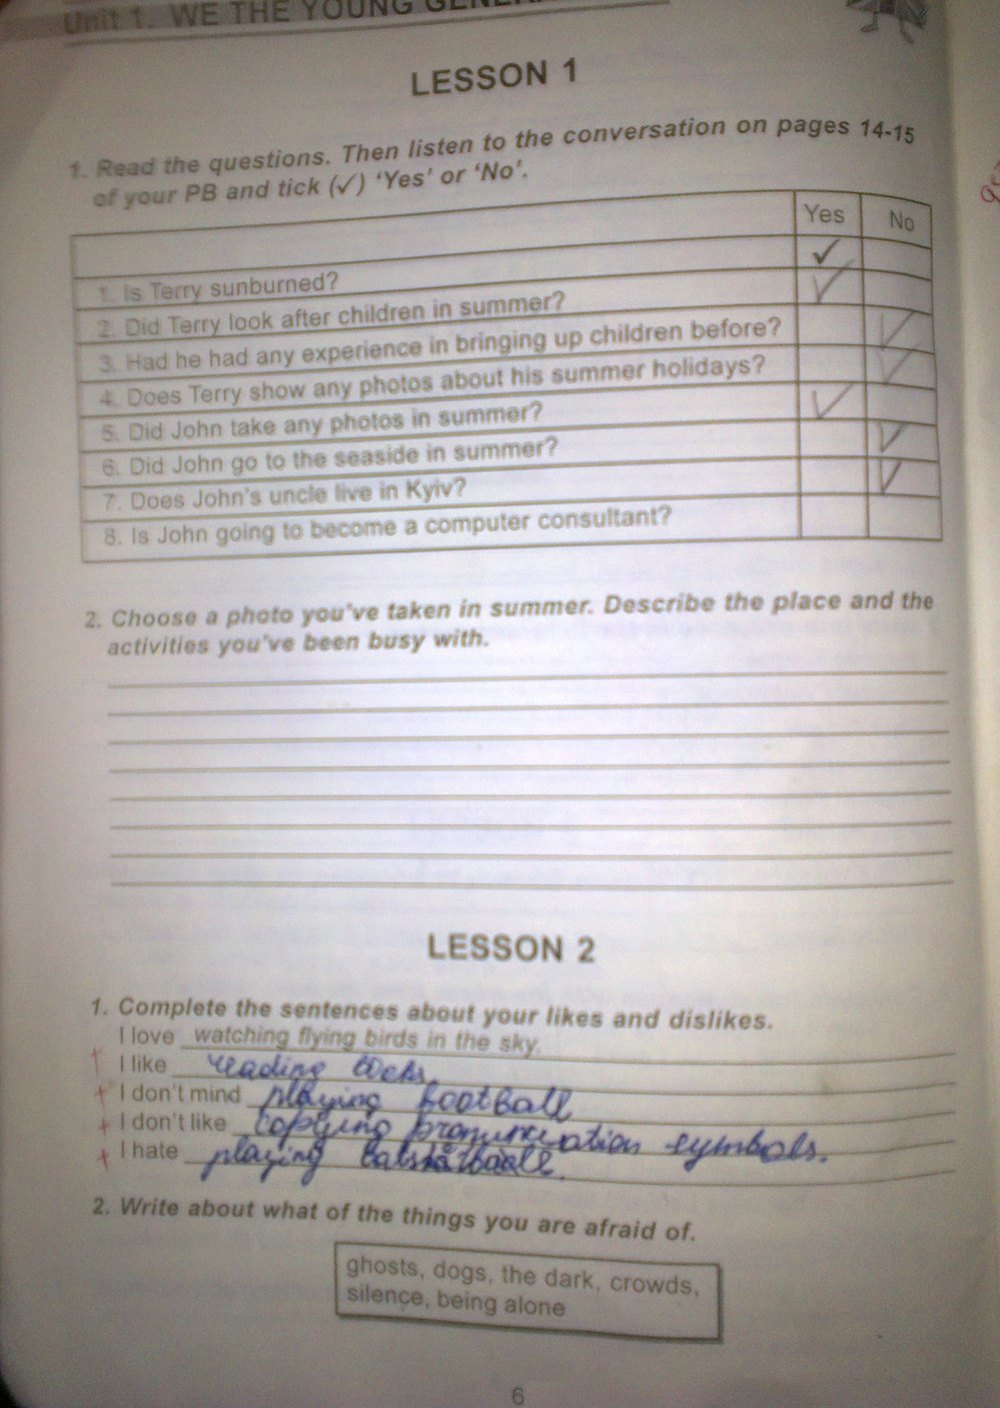 Unit 1. WE THE YOUNG
LESSON 1
1. Read the questions. Then listen to the conversation on pages 14-15
of your PB and tick (✓) 'Yes' or 'No'.
Yes No
✓
1. Is Terry sunburned? ✓
2. Did Terry look after children in summer?
3. Had he had any experience in bringing up children before? ✓
4. Does Terry show any photos about his summer holidays? ✓
5. Did John take any photos in summer? ✓
6. Did John go to the seaside in summer? ✓
7. Does John's uncle live in Kyiv? ✓
8. Is John going to become a computer consultant?
2. Choose a photo you've taken in summer. Describe the place and the
activities you've been busy with.
LESSON 2
1. Complete the sentences about your likes and dislikes.
I love watching flying birds in the sky.
+ I like reading books.
+ I don't mind playing football
+ I don't like copying symbols.
+ I hate playing
2. Write about what of the things you are afraid of.
ghosts, dogs, the dark, crowds,
silence, being alone
6